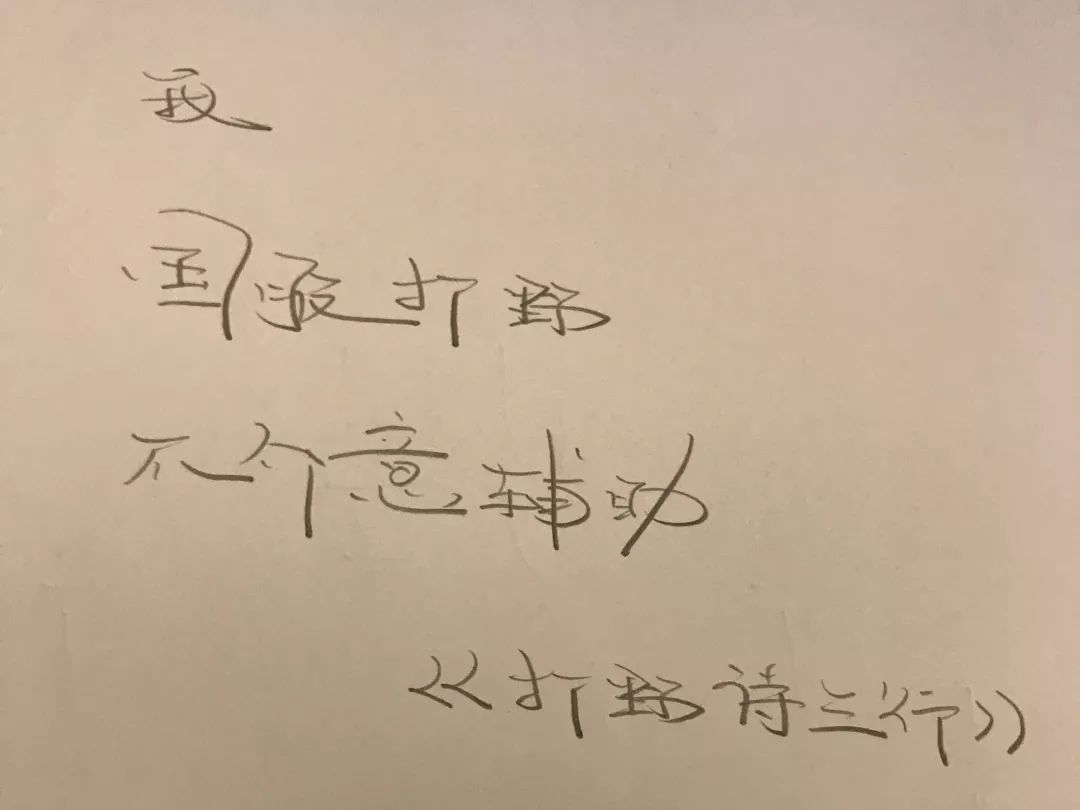 我
国服打野
不介意辅助
《打野诗三行》